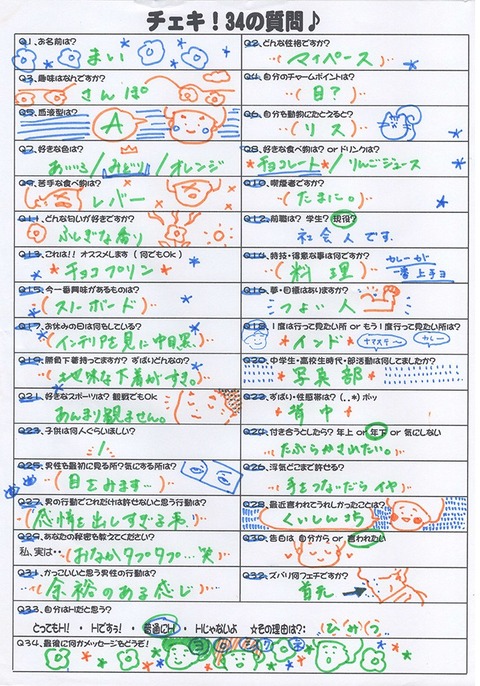 チェキ！34の質問♪
Q1.お名前は？
まい
Q2.どんな性格ですか？
マイペース
Q3.趣味はなんですか？
さんぽ
Q4.自分のチャームポイントは？
(目？)
Q5.血液型は？
A
Q6.自分を動物にたとると？
(リス)
Q7.好きな色は？
あいいろ/みどり/オレンジ
Q8.好きな食べ物は？orドリンクは？
チョコレート/りんごジュース
Q9.苦手な食べ物は？
レバー
Q10.喫煙者ですか？
(たまに。)
Q11.どんな匂いが好きですか？
ふしぎな香り
Q12.前職は？ 学生？ 現役？
社会人です.
Q13.これは！！ オススメします（何でもOk）
チョコプリン
Q14.特技・得意な事は何ですか？
(料理)
カレーが
一番上手ヨ
Q15.今一番興味があるものは？
(スノーボード)
Q16.夢・目標はありますか？
つよい人
Q17.お休みの日は何をしている？
(インテリアを見に中目黒)
Q18.1度は行って見たい所 or もう1度行って見たい所は？
インド
ナマステ〜
カレー
Q19.勝負下着持ってますか？ ずばりどんなの？
地味な下着がすき。
Q20.中学生・高校生時代・部活動は何してましたか？
写真部
Q21.好きなスポーツは？ 観戦でもOK
あんまり観ません。
Q22.ずばい・性感帯は？（..*）ポッ
背中
Q23.子供は何人ぐらいほしい？
1
Q24.付き合うとしたら？ 年上 or 年下 or 気にしない
たぶらかされたい。
Q25.男性を最初に見る所？気にする所は？
(目をみます…)
Q26.浮気どこまで許せる？
手をつないだらイヤ
Q27.男の行動でこれだけは許せないと思う行動は？
(感情を出しすぎる事)
Q28.最近言われてうれしかったことは？
くいしんぼう
Q29.あなたの秘密を教えてください？
私、実は・・(おなかタプタプ…笑)
Q30.告白は 自分から or 言われたい
Q31.かっこいいと思う男性の行動は？
余裕のある感じ
Q32.ズバリ何フェチですか？
首元
Q33.自分はHだと思う？
とってもH！ ・ Hですぅ！ ・ 普通にH ・ Hじゃないよ ☆その理由は？： (ひ・み・つ)
Q34.最後に何かメッセージをどうぞ！
ヨロシクネ